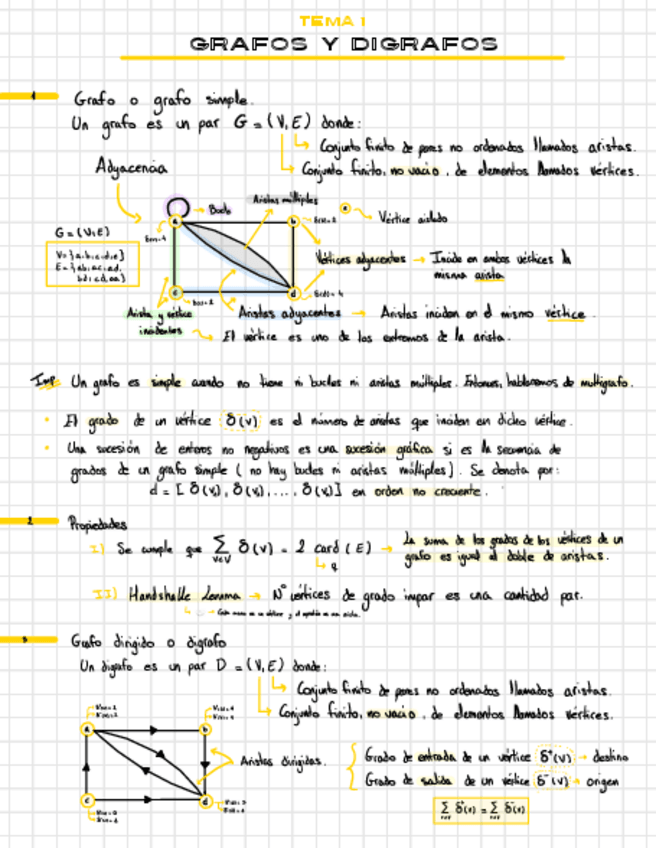 TEMA 1
GRAFOS Y DIGRAFOS
1
Grafo o grafo simple.
Un grafo es un par G = (V, E) donde:
Conjunto finito de pares no ordenados llamados aristas.
Conjunto finito, no vacío, de elementos llamados vértices.
Adyacencia
Bucle
Aristas múltiples
e
Vértice aislado
a
b
G = (V, E)
Vértices adyacentes → Inciden en ambos vértices la
misma arista
c
d
Arista y vértice
incidentes
Aristas adyacentes → Aristas inciden en el mismo vértice.
El vértice es uno de los extremos de la arista.
Imp Un grafo es simple cuando no tiene ni bucles ni aristas múltiples. Entonces, hablaremos de multigrafo.
• El grado de un vértice δ(v) es el número de aristas que inciden en dicho vértice.
• Una sucesión de enteros no negativos es una sucesión gráfica si es la secuencia de
grados de un grafo simple ( no hay bucles ni aristas múltiples). Se denota por:
d = [ δ(v₁), δ(v₂), ..., δ(vₙ)] en orden no creciente.
2
Propiedades
I) Se cumple que Σ δ(v) = 2 card (E) → La suma de los grados de los vértices de un
v∈V
q
grafo es igual al doble de aristas.
II) Handshake Lemma → Nº vértices de grado impar es una cantidad par.
3
Grafo dirigido o digrafo
Un digrafo es un par D = (V, E) donde:
Conjunto finito de pares no ordenados llamados aristas.
Conjunto finito, no vacío, de elementos llamados vértices.
a
b
Aristas dirigidas.
Grado de entrada de un vértice δ⁺(v) → destino
Grado de salida de un vértice δ⁻(v) → origen
c
d
Σ δ⁺(v) = Σ δ⁻(v)